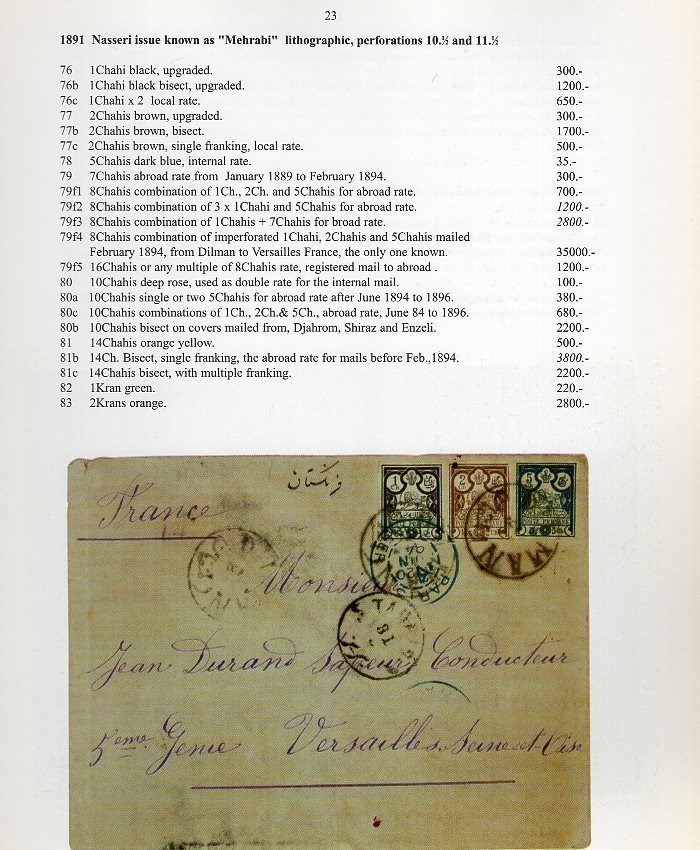 23
1891 Nasseri issue known as "Mehrabi" lithographic, perforations 10.½ and 11.½
76 1Chahi black, upgraded. 300.-
76b 1Chahi black bisect, upgraded. 1200.-
76c 1Chahi x 2 local rate. 650.-
77 2Chahis brown, upgraded. 300.-
77b 2Chahis brown, bisect. 1700.-
77c 2Chahis brown, single franking, local rate. 500.-
78 5Chahis dark blue, internal rate. 35.-
79 7Chahis abroad rate from January 1889 to February 1894. 300.-
79f1 8Chahis combination of 1Ch., 2Ch. and 5Chahis for abroad rate. 700.-
79f2 8Chahis combination of 3 x 1Chahi and 5Chahis for abroad rate. 1200.-
79f3 8Chahis combination of 1Chahis + 7Chahis for broad rate. 2800.-
79f4 8Chahis combination of imperforated 1Chahi, 2Chahis and 5Chahis mailed
February 1894, from Dilman to Versailles France, the only one known. 35000.-
79f5 16Chahis or any multiple of 8Chahis rate, registered mail to abroad . 1200.-
80 10Chahis deep rose, used as double rate for the internal mail. 100.-
80a 10Chahis single or two 5Chahis for abroad rate after June 1894 to 1896. 380.-
80c 10Chahis combinations of 1Ch., 2Ch.& 5Ch., abroad rate, June 84 to 1896. 680.-
80b 10Chahis bisect on covers mailed from, Djahrom, Shiraz and Enzeli. 2200.-
81 14Chahis orange yellow. 500.-
81b 14Ch. Bisect, single franking, the abroad rate for mails before Feb.,1894. 3800.-
81c 14Chahis bisect, with multiple franking. 2200.-
82 1Kran green. 220.-
83 2Krans orange. 2800.-
فرنگستان
1 2 5
France
MAN
Monsieur
Jean Durand Sapeur Conducteur
5eme Genie Versailles. Seine-et-Oise